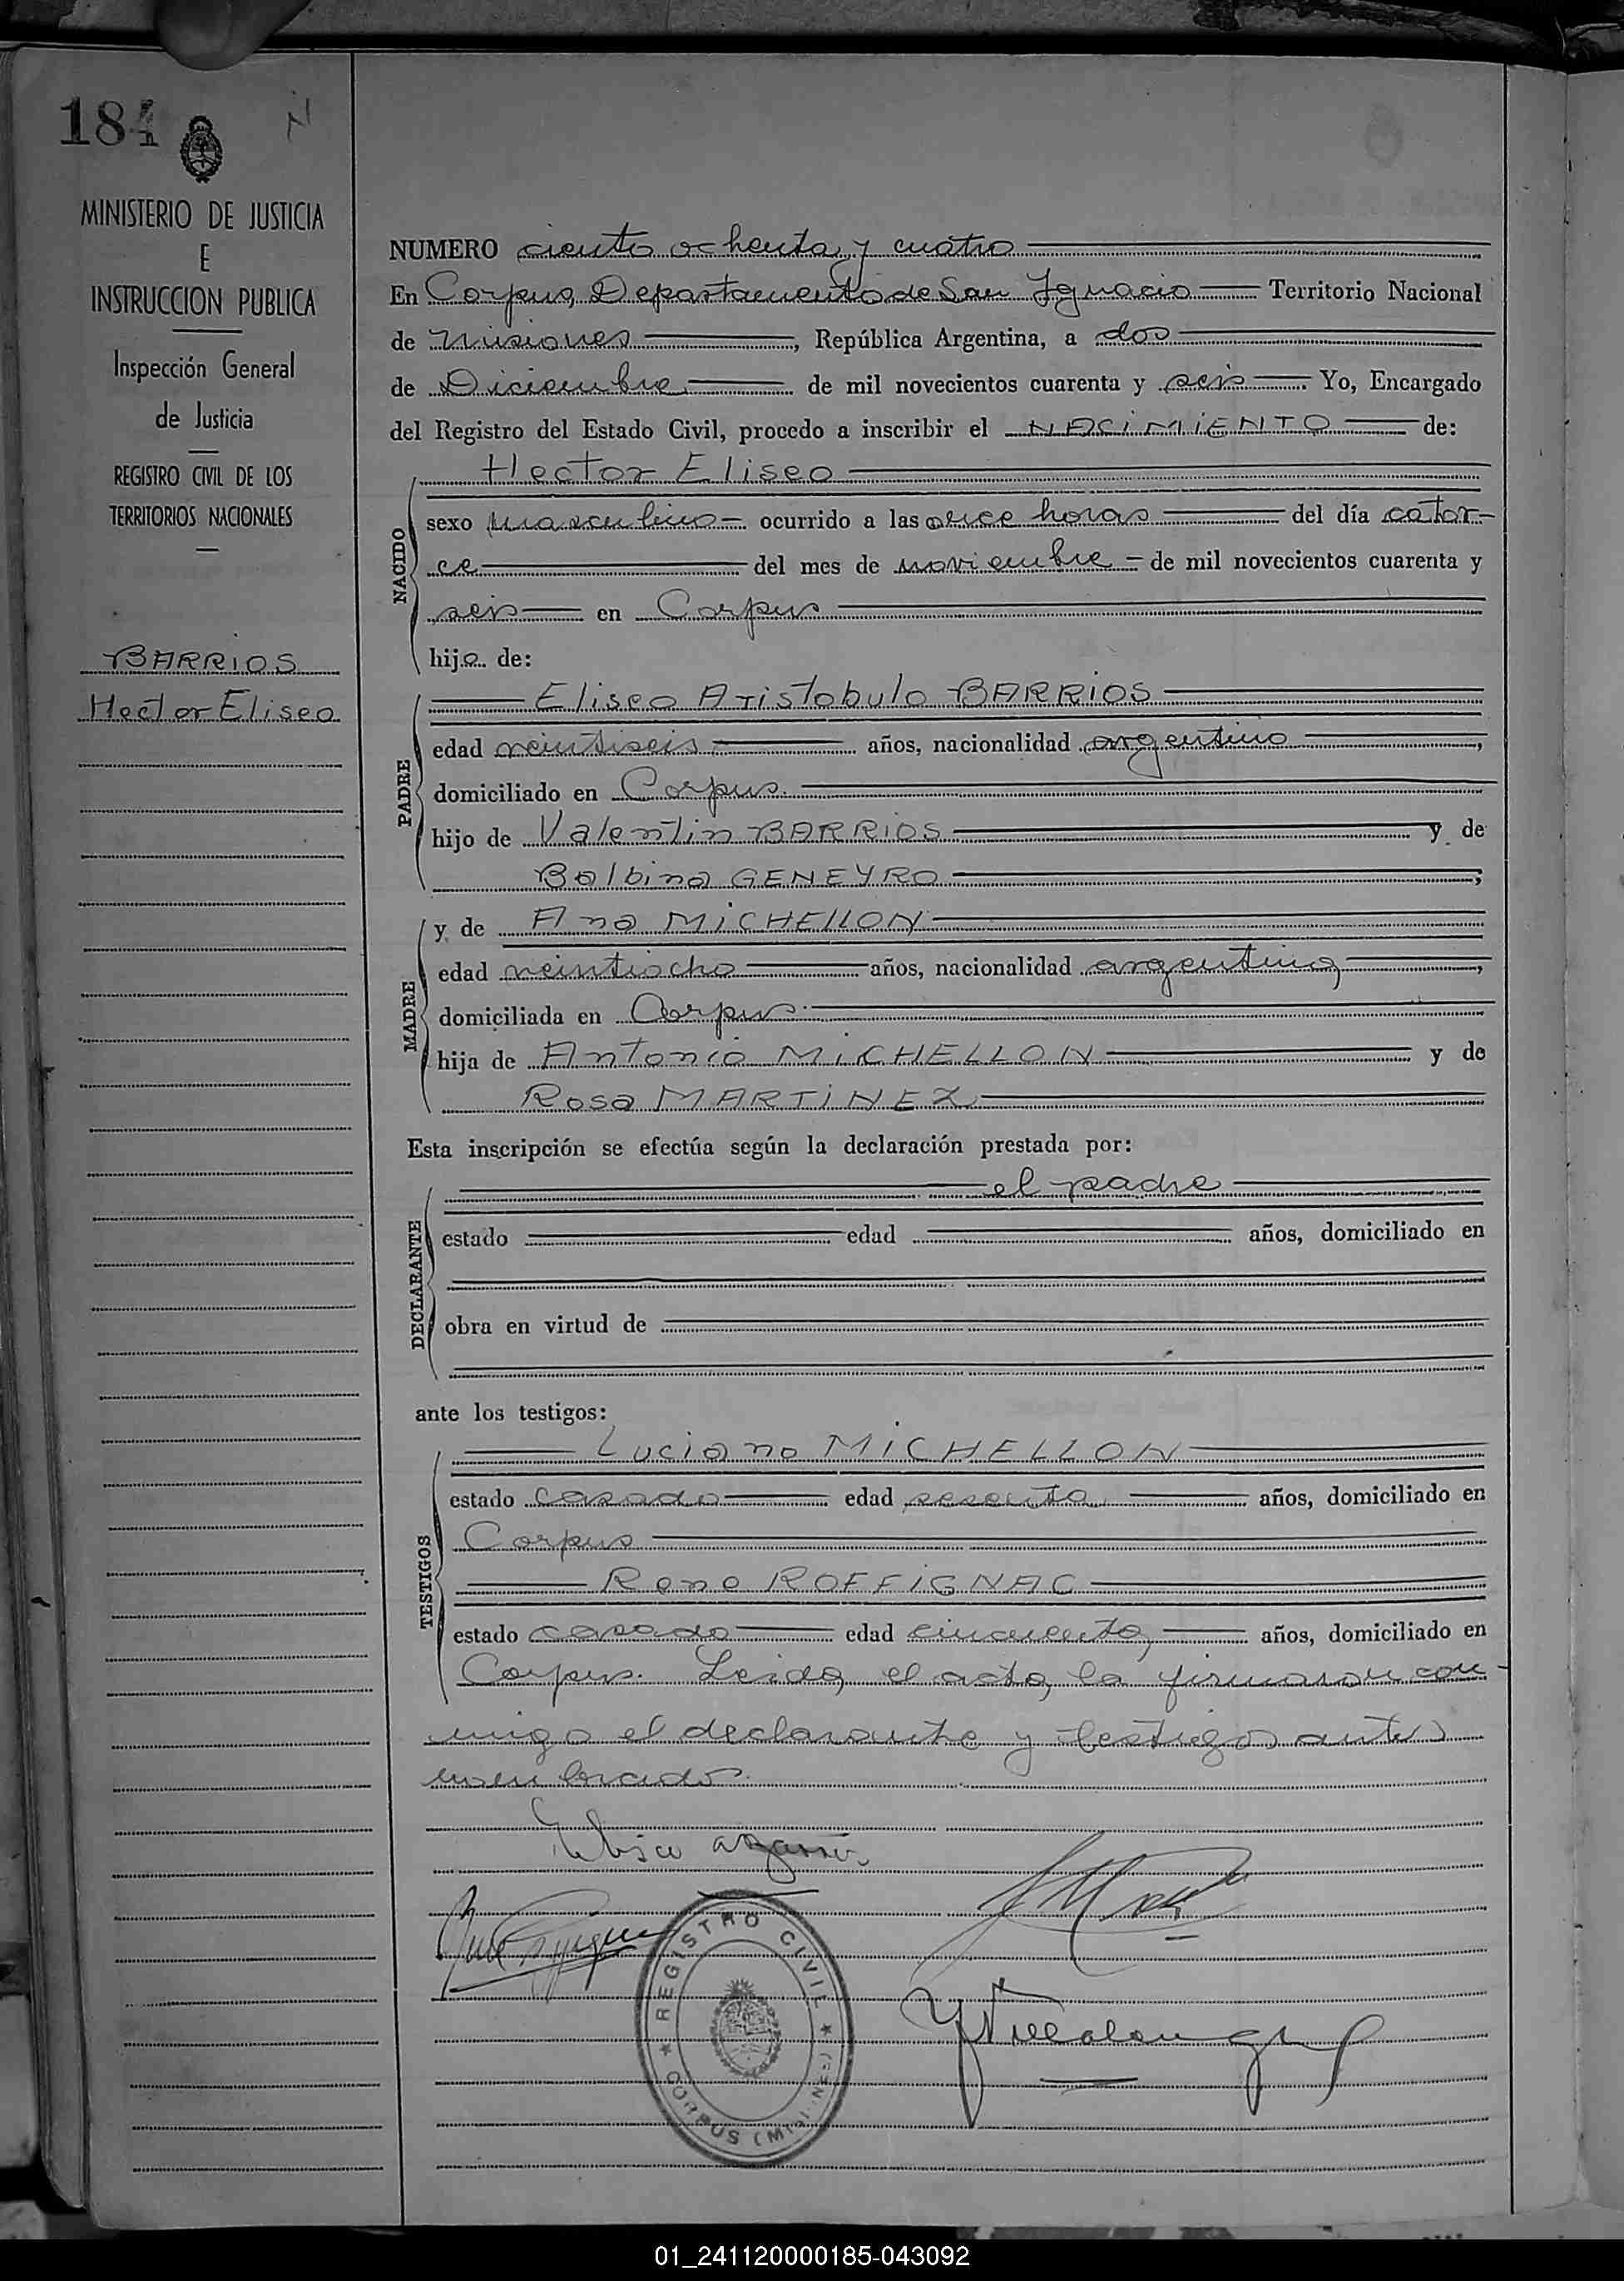 184
N
MINISTERIO DE JUSTICIA
E
INSTRUCCION PUBLICA
Inspección General
de Justicia
REGISTRO CIVIL DE LOS
TERRITORIOS NACIONALES
BARRIOS
Hector Eliseo
NUMERO ciento ochenta y cuatro
En Corpus, Departamento de San Ignacio Territorio Nacional
de Misiones, República Argentina, a dos
de Diciembre de mil novecientos cuarenta y seis. Yo, Encargado
del Registro del Estado Civil, procedo a inscribir el NACIMIENTO de:
NACIDO
Hector Eliseo
sexo masculino ocurrido a las once horas del día cator-
ce del mes de noviembre de mil novecientos cuarenta y
seis en Corpus
hijo de:
PADRE
Eliseo Aristobulo BARRIOS
edad veintiseis años, nacionalidad argentino,
domiciliado en Corpus.
hijo de Valentin BARRIOS y de
Balbina GENEYRO;
MADRE
y de Ana MICHELLON
edad veintiocho años, nacionalidad argentina,
domiciliada en Corpus.
hija de Antonio MICHELLON y de
Rosa MARTINEZ
Esta inscripción se efectúa según la declaración prestada por:
DECLARANTE
el padre
estado edad años, domiciliado en
obra en virtud de
ante los testigos:
TESTIGOS
Luciano MICHELLON
estado casado edad sesenta años, domiciliado en
Corpus
Rene ROFFIGNAC
estado casado edad cincuenta, años, domiciliado en
Corpus. Leida el acta, la firmaron con-
migo el declarante y testigos antes
nombrados.
REGISTRO CIVIL
CORPUS (Misiones)
01_241120000185-043092